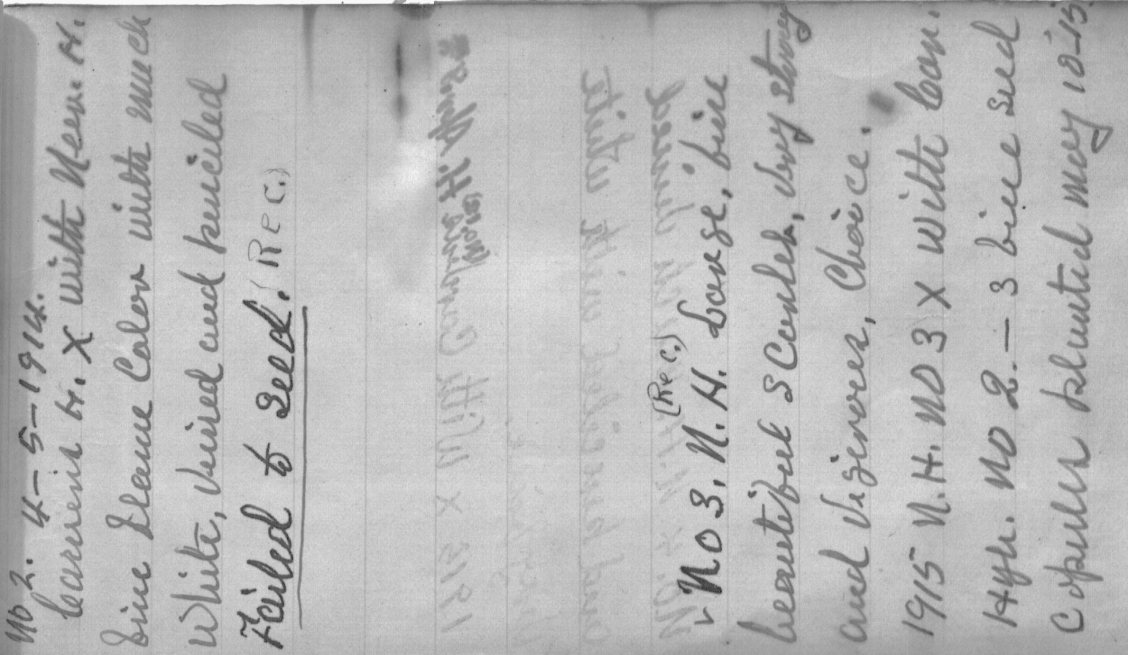 No 2. 4-5-1914.
Carneia H. X with New. H.
Fine Flame Color with much
White, Veined and penciled
Failed to Seed. (Rec.)
(Rec.)
No 3. N.H. Large, fine
beautiful Scarlet, very strong
and Vigorous, Choice.
1915 N.H. No 3 X with Car.
Hyb. No 2. - 3 fine seed
Copules planted may 10-15